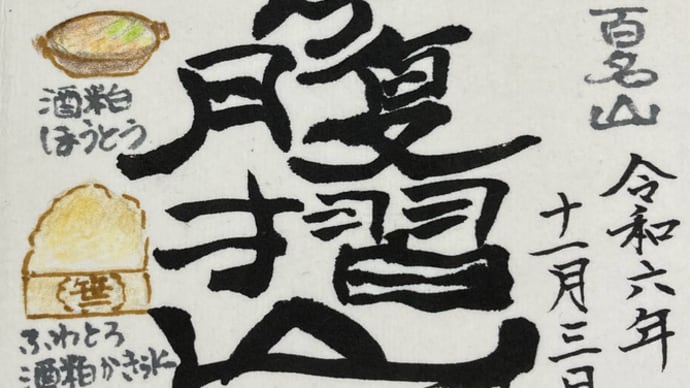 百名山
令和六年
十一月三日
腹摺山
酒粕
ほうとう
笹
ふわとろ
酒粕かき氷